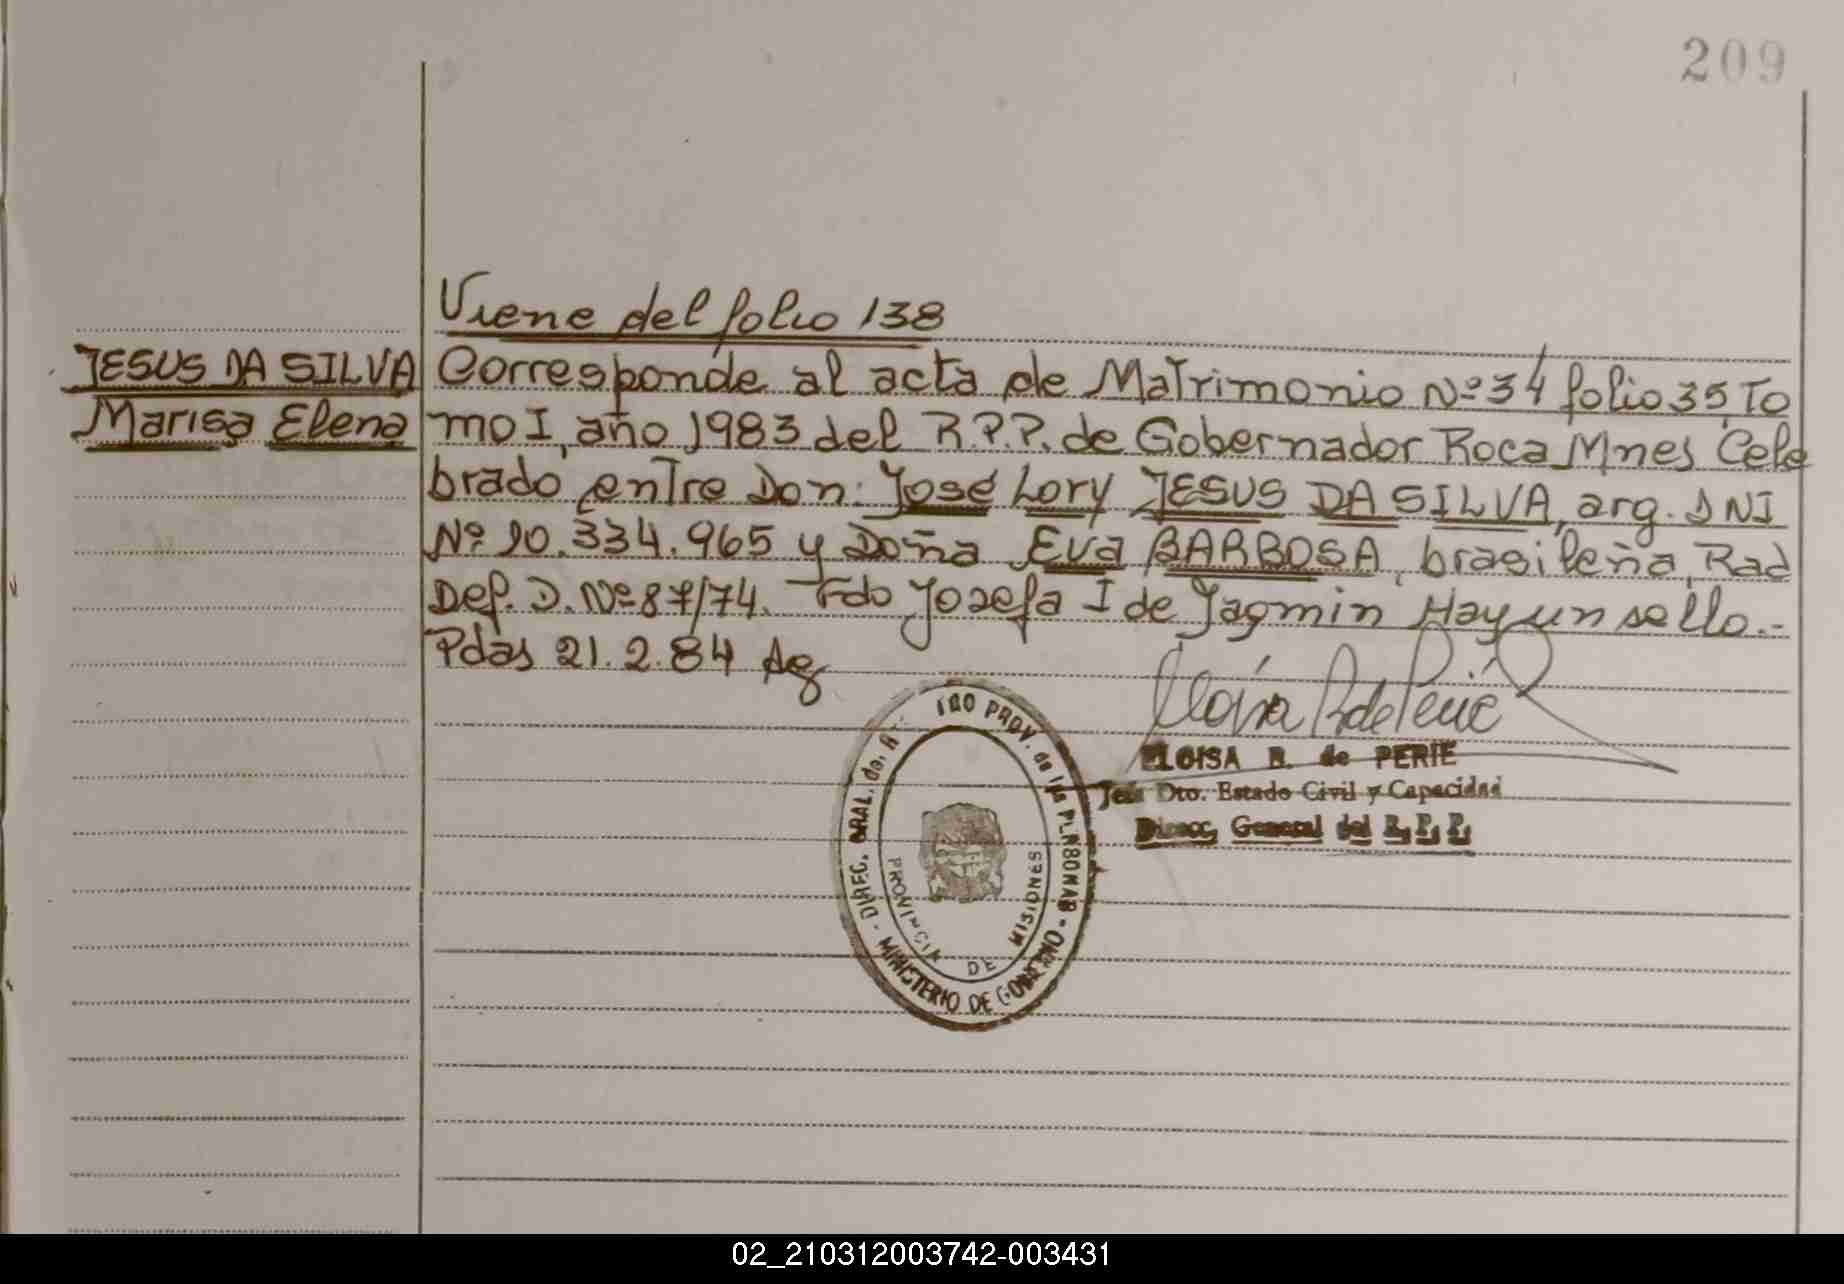 209
Viene del folio 138
JESUS DA SILVA
Marisa Elena
Corresponde al acta de Matrimonio Nº 34 folio 35, To
mo I, año 1983 del R.P.P. de Gobernador Roca Mnes Cele
brado entre Don: José Lory JESUS DA SILVA, arg. DNI
Nº 10.334.965 y Doña Eva BARBOSA, brasileña, Rad
Def. D. Nº 87/74. Fdo Josefa I de Jagmin Hay un sello.-
Pdas 21.2.84
ELOISA R. de PERIE
Jefa Dto. Estado Civil y Capacidad
Direcc. General del R. P. P.
DIREC. GRAL. del PROV. de las PERSONAS - MINISTERIO DE GOBIERNO -
PROVINCIA DE MISIONES
02_210312003742-003431